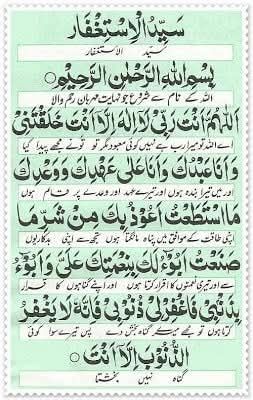 سَيِّدُ الْاِسْتِغْفَار
سید الاستغفار
بِسْمِ اللهِ الرَّحْمٰنِ الرَّحِيْمِ
اللہ کے نام سے شروع جو نہایت مہربان رحم والا
اَللّٰهُمَّ اَنْتَ رَبِّيْ لَآ اِلٰهَ اِلَّا اَنْتَ خَلَقْتَنِيْ
اے اللہ تو میرا رب ہے نہیں کوئی معبود مگر تو تو نے مجھے پیدا کیا
وَاَنَا عَبْدُكَ وَاَنَا عَلٰى عَهْدِكَ وَوَعْدِكَ
اور میں تیرا بندہ ہوں اور تیرے عہد اور وعدے پر قائم ہوں
مَا اسْتَطَعْتُ اَعُوْذُ بِكَ مِنْ شَرِّ مَا
اپنی طاقت کے موافق میں پناہ مانگتا ہوں تجھ سے اپنی بدکاریوں
صَنَعْتُ اَبُوْءُ لَكَ بِنِعْمَتِكَ عَلَيَّ وَاَبُوْءُ
سے تیری نعمتوں کا اقرار کرتا ہوں اور اپنے گناہوں کا اقرار
بِذَنْبِيْ فَاغْفِرْ لِيْ ذُنُوْبِيْ فَاِنَّهٗ لَا يَغْفِرُ
کرتا ہوں تو مجھے میرے گناہ بخش دے پس تیرے سوا کوئی
الذُّنُوْبَ اِلَّا اَنْتَ
گناہ نہیں بخشتا